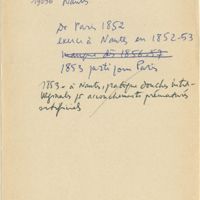 Nantes
Dr Paris 1852
exerce à Nantes en 1852-53
manque dès 1856-57
1853 parti pour Paris
1853 - à Nantes, pratique douches inter-
utérines pr accouchements prématurés
artificiels